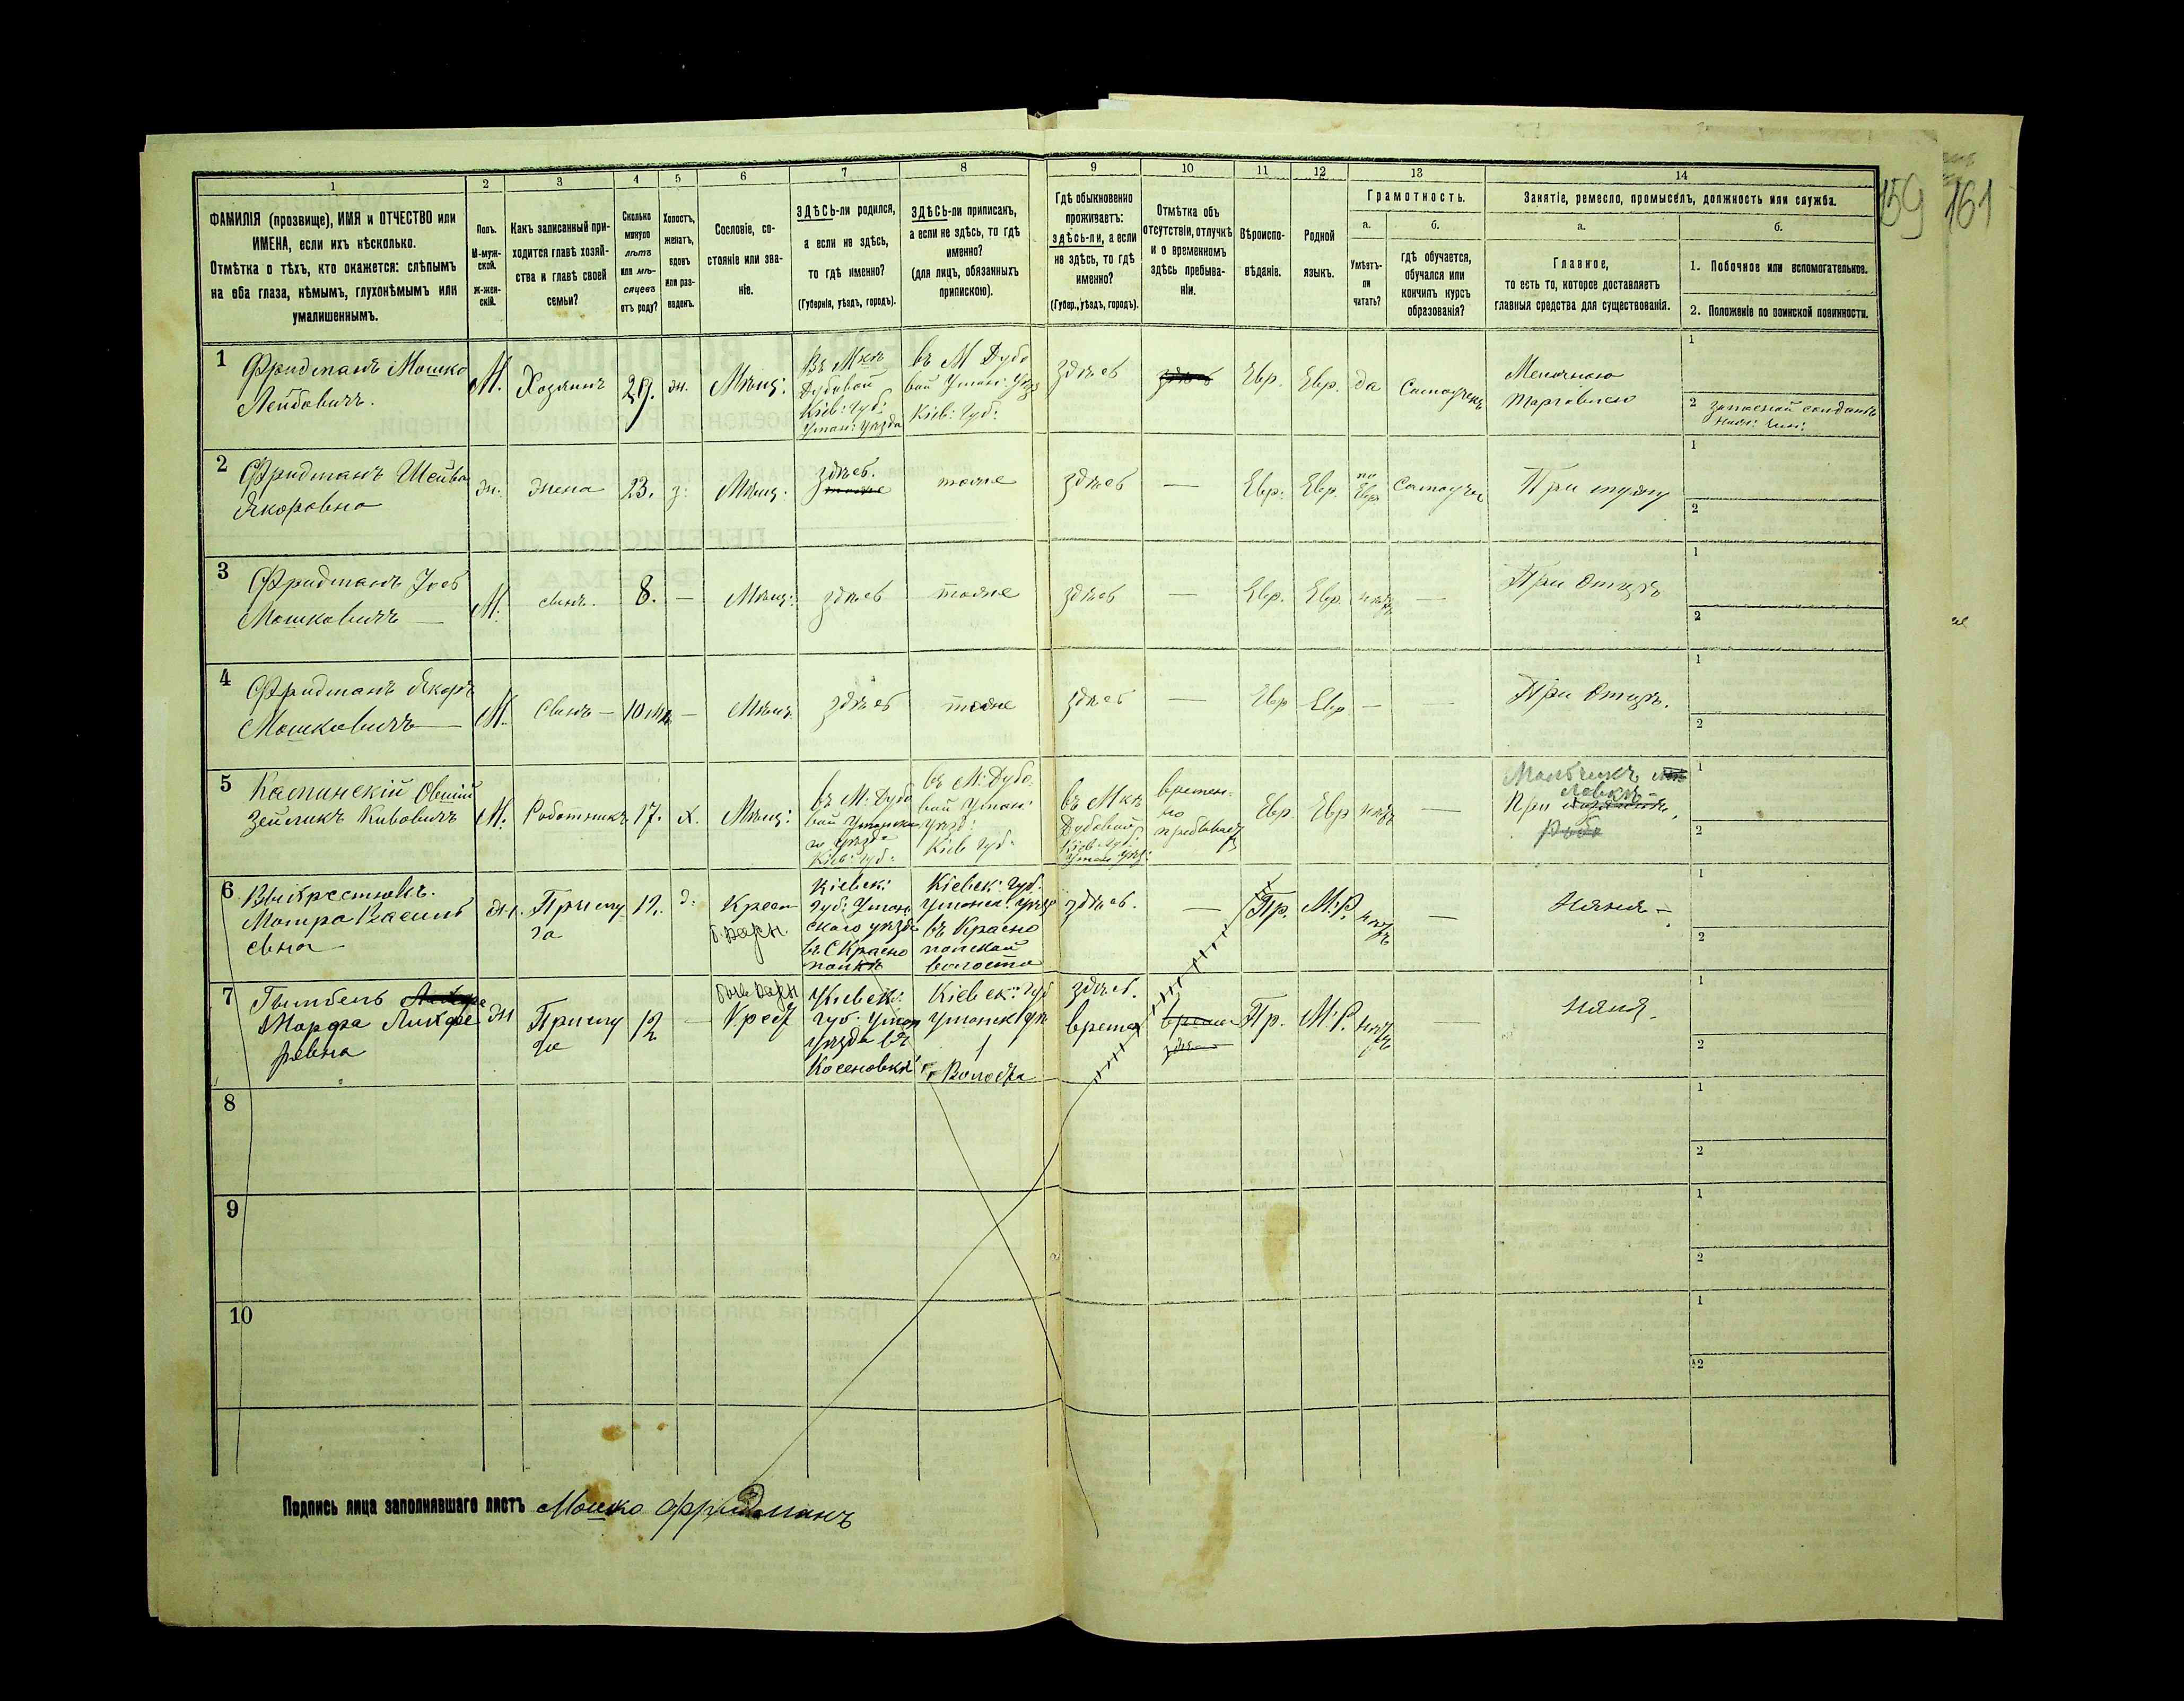 159 161
1 2 3 4 5 6 7 8 9 10 11 12 13 14
ФАМИЛІЯ (прозвище), ИМЯ и ОТЧЕСТВО или
ИМЕНА, если ихъ нѣсколько.
Отмѣтка о тѣхъ, кто окажется: слѣпымъ
на оба глаза, нѣмымъ, глухонѣмымъ или
умалишеннымъ.
Полъ.
М-муж-
ской.
ж-жен-
скій.
Какъ записанный при-
ходится главѣ хозяй-
ства и главѣ своей
семьи?
Сколько
минуло
лѣтъ
или мѣ-
сяцевъ
отъ роду?
Холостъ,
женатъ,
вдовъ
или раз-
веденъ.
Сословіе, со-
стояніе или зва-
ніе.
ЗДѢСЬ-ли родился,
а если не здѣсь,
то гдѣ именно?
(Губернія, уѣздъ, городъ).
ЗДѢСЬ-ли приписанъ,
а если не здѣсь, то гдѣ
именно?
(для лицъ, обязанныхъ
припискою).
Гдѣ обыкновенно
проживаетъ:
здѣсь-ли, а если
не здѣсь, то гдѣ
именно?
(Губер., уѣздъ, городъ).
Отмѣтка объ
отсутствіи, отлучкѣ
и о временномъ
здѣсь пребыва-
ніи.
Вѣроиспо-
вѣданіе.
Родной
языкъ.
Грамотность.
а.
Умѣетъ-
ли
читать?
б.
гдѣ обучается,
обучался или
кончилъ курсъ
образованія?
Занятіе, ремесло, промыселъ, должность или служба.
а.
Главное,
то есть то, которое доставляетъ
главныя средства для существованія.
б.
1. Побочное или вспомогательное.
2. Положеніе по воинской повинности.
1
Фридманъ Мошко
Лейбовичъ.
М.
Хозяинъ
29.
ж.
Мѣщ:
Въ Мкѣ
Дубовой
Кіев: Губ:
Уман: уѣзда
въ М Дубо
вой Уман: уѣзд
Кіев: Губ:
здѣсь
здѣсь
Евр.
Евр.
да
Самоучкъ
Мелочною
торговлею
1
2 запасной солдатъ
2
Фридманъ Шейва
Якоровна
ж.
жена
23.
з:
Мѣщ:
здѣсь.
тоже
тоже
здѣсь
—
Евр.
Евр.
по
Евр
Самоучк
При мужу
1
2
3
Фридманъ
Мошковичъ —
М.
сынъ.
8.
—
Мѣщ:
здѣсь
тоже
здѣсь
—
Евр.
Евр.
нѣтъ
—
При отцѣ
1
2
4
Фридманъ Якоръ
Мошковичъ —
М.
Сынъ —
10 мѣ.
—
Мѣщ.
здѣсь
тоже
здѣсь
—
Евр
Евр.
—
—
При отцѣ.
1
2
5
Каминскій Овший
Зейликъ Кивовичъ
М.
Работникъ
17.
х.
Мѣщ:
въ М: Дубо
вой Уманска
го уѣзд
Кіев: Губ:
въ М: Дубо-
вой Уман:
уѣзд:
Кіев Губ:
въ Мкѣ
Дубовой
Кіев Губ:
Уман уѣз:
времен-
но
пребывает
Евр.
Евр
нѣтъ
—
Мальчикъ
При лавкѣ
1
2
6
Выкрестюкъ.
Мотра Василь
евна
ж.
Прислу
га
12.
д:
Крест
б. варн.
Кіевск:
Губ: Уман
скаго уѣзд
въ С Красно
полкѣ
Кіевск: Губ:
Уманск: уѣзд
въ Красно
полской
волости
здѣсь.
—
Пр.
М.Р.
нѣтъ
—
Няня —
1
2
7
Гымбель
Марфа
ровна
ж
Прислу
га
12
—
Крест
Кіевск:
губ: Уман
уѣзда въ
Косеновкѣ
Кіевск: Губ
Уманск
Волость
здѣсь.
време
Пр.
М.Р.
нѣтъ
—
Няня.
1
2
8
1
2
9
1
2
10
1
2
Подпись лица заполнявшаго листъ Мошко Фридманъ